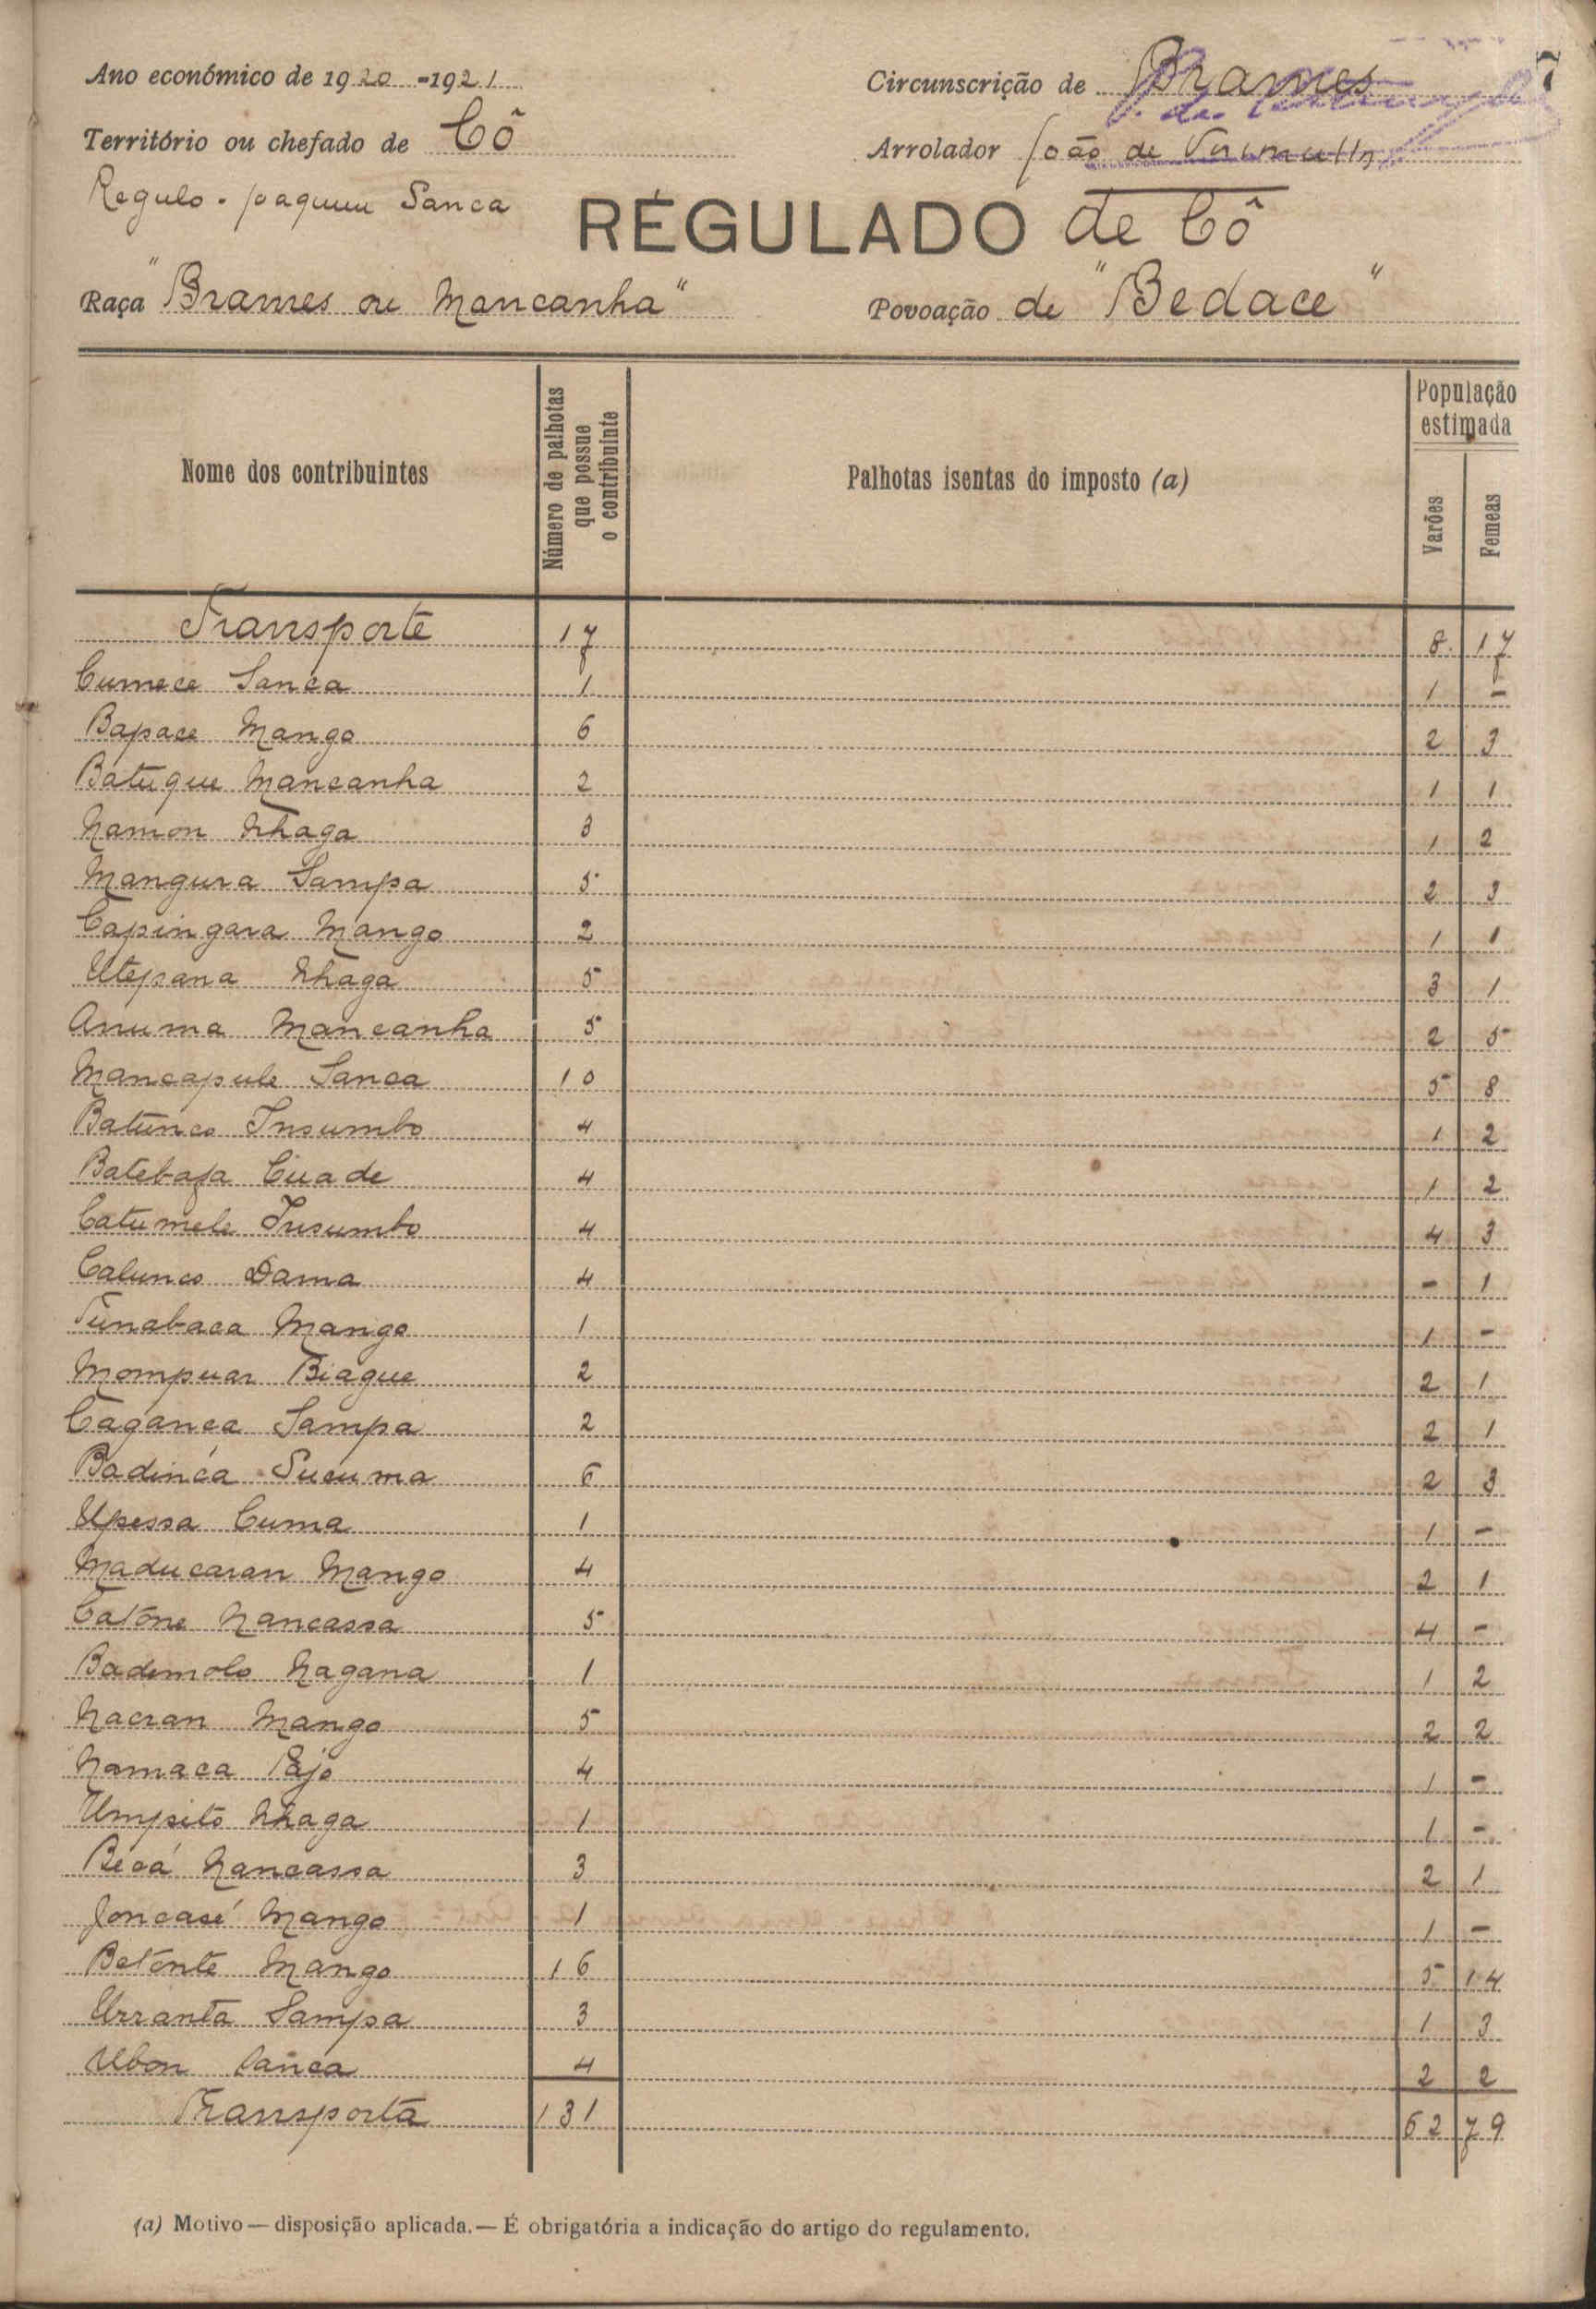 7
Ano económico de 1920-1921
Circunscrição de Brames
Território ou chefado de Cô
Arrolador João de
Regulo - Joaquim Sanca
RÉGULADO de Cô
Raça "Brames ou Mancanha"
Povoação de "Bedace"
Nome dos contribuintes
Número de palhotas que possue o contribuinte
Palhotas isentas do imposto (a)
População estimada
Varões
Femeas
Transporte 17 8 17
Cumece Sanca 1 1 -
Bapace Mango 6 2 3
Batuque Mancanha 2 1 1
Namon Nhaga 3 1 2
Mangura Sampa 5 2 3
Capingara Mango 2 1 1
Utepana Nhaga 5 3 1
Anuma Mancanha 5 2 5
Mancapule Sanca 10 5 8
Batunco Insumbo 4 1 2
Batebafa Cuade 4 1 2
Catumele Insumbo 4 4 3
Calunco Dama 4 - 1
Tunabaca Mango 1 1 -
Mompuar Biague 2 2 1
Caganca Sampa 2 2 1
Badinca Sucuma 6 2 3
Upessa Cuma 1 1 -
Maducaran Mango 4 2 1
Catone Nancassa 5 4 -
Bademolo Nagana 1 1 2
Nacran Mango 5 2 2
Namaca Pajo 4 1 -
Umpito Nhaga 1 1 -
Becá Nancassa 3 2 1
Joncasé Mango 1 1 -
Betonte Mango 16 5 14
Urranta Sampa 3 1 3
Ubon Sanca 4 2 2
Transporta 131 62 79
(a) Motivo — disposição aplicada. — É obrigatória a indicação do artigo do regulamento.